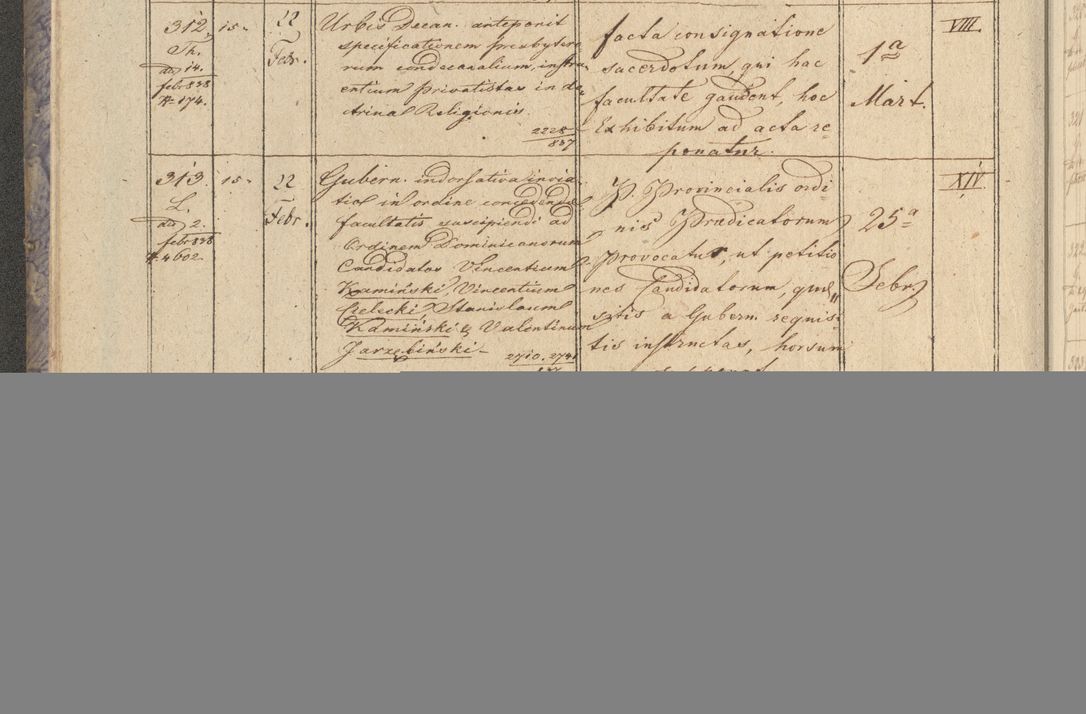 312.
Th.
ad 14.
febr 838
№ 174.
15
22
Febr.
Urbis Decan. anteponit
specificationem presbytero
rum condecanalium, instru
entium privatistas in do
ctrina Religionis.
2228
837
facta consignatione
sacerdotum, qui hac
facultate gaudent, hoc
Exhibitum ad acta re
ponatur.
1ª
Mart.
VIII.
313.
L.
ad 2.
febr 838
№ 4602.
15
22
Febr.
Gubern. indorsativa invia
tio in ordine concedendae
facultatis suscipiendi ad
Ordinem Dominicanorum
Candidatos Vincentium
Kamiński, Vincentium
Cielecki, Stanislaum
Kamiński & Valentinum
Jarzębiński
2710. 2741
P. Provincialis ordi
nis Prædicatorum
Provocatur, ut petitio
nes Candidatorum, quae
sitis a Gubern. requis
tis instructas, horsum
25ª
Febr.
XIV.